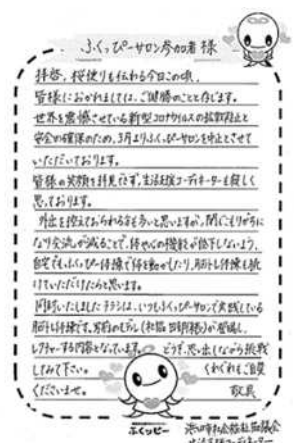 ふくっぴーサロン参加者 様
拝啓、桜便りも伝わる今日この頃、
皆様におかれましては、ご健勝のことと存じます。
世界を震撼させている新型コロナウイルスの拡散防止と
安全の確保のため、3月よりふくっぴーサロンを中止とさせて
いただいております。
皆様の笑顔を拝見できず、生活支援コーディネーターも寂しく
思っております。
外出を控えておられる方も多いと思いますが、閉じこもりがちに
なり交流が減ることで、体や心の機能が低下しないよう、
自宅でもふくっぴー体操で体を動かしたり、脳トレ体操も続
けていただけたらと思います。
同封いたしましたチラシは、いつもふくっぴーサロンで実践している
脳トレ体操です。男前のモデル(社協 様)が登場し、
レクチャーする内容となっています。どうぞ、思い出しながら挑戦
してみて下さい。くれぐれもご自愛
くださいませ。敬具
ふくッピー
浜田市社会福祉協議会
生活支援コーディネーター